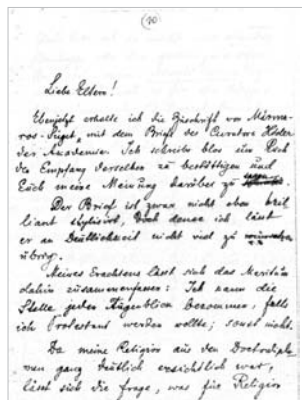 (10)
Liebe Eltern!
Ebenjetzt erhalte ich die Zuschrift von Mármaros-Sziget, mit dem Brief des Curators
der Academie. Ich schreibe blos um Euch
den Empfang derselben zu bestättigen und
Euch meine Meinung darüber zu sagen
Der Brief ist zwar nicht eben bril
liant stylisirt, doch denke ich lässt
er an Deutlichkeit nicht viel zu
übrig.
Meines Erachtens lässt sich das Meritum
dahin zusammenfassen: Ich kann die
Stelle jeden Augenblick bekommen, falls
ich Protestant werden wollte; sonst nicht.
Da meine Religion aus den Doctordiplo
men ganz deutlich ersichtlich war,
lässt sich die Frage, was für Religion